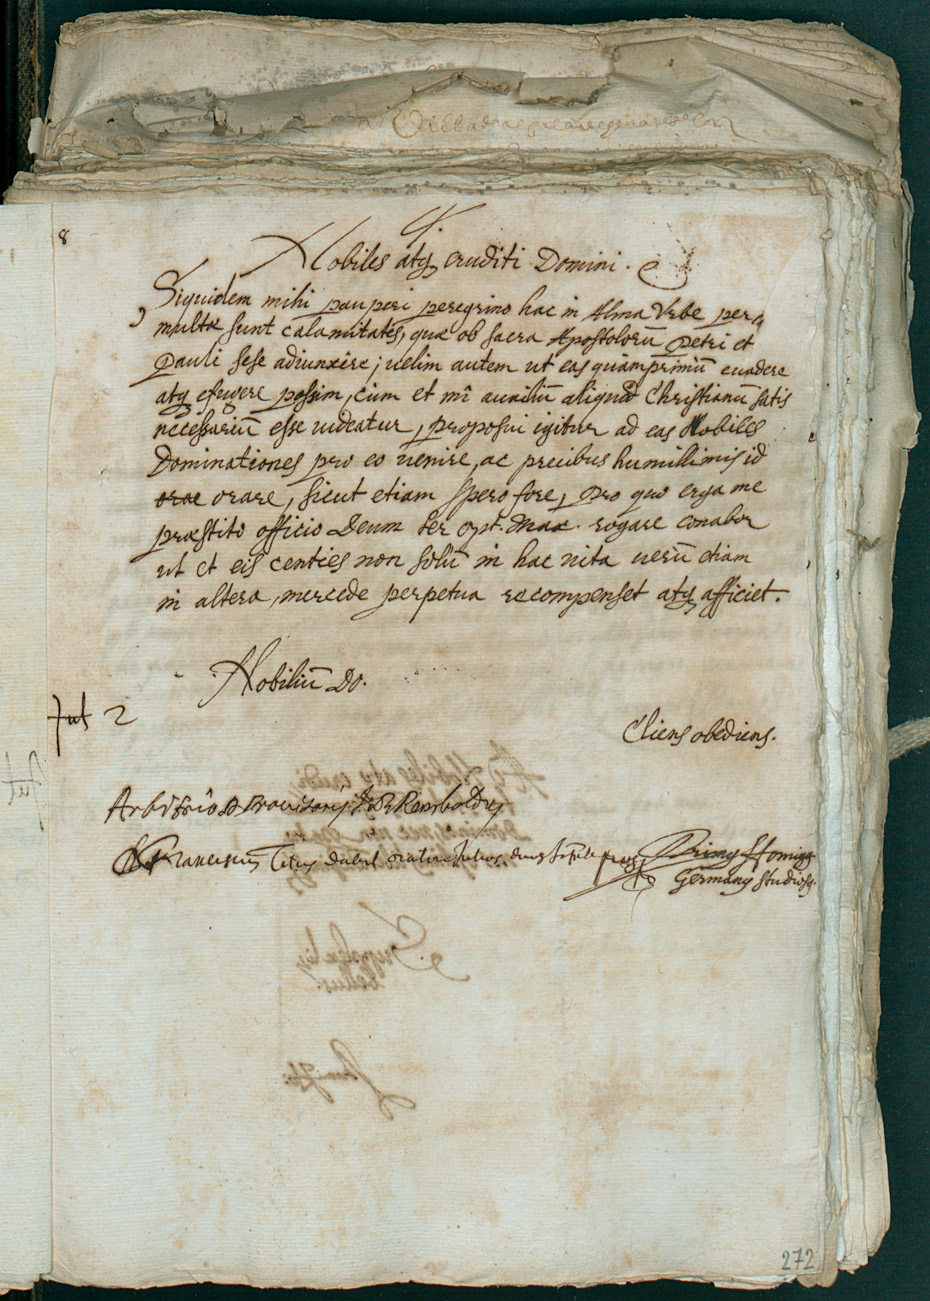 8
Nobiles atq; eruditi Domini.
Siquidem mihi pauperi peregrino hac in Alma Vrbe per
multæ sunt calamitates, quæ ob sacra Apostolorū Petri et
Pauli sese adiunxêre; uelim autem ut eas quàmprimū euadere
atq; efugere possim, cùm et mī auxiliū aliquod Christianū satis
necessariū esse uideatur, proposui igitur ad eas Nobiles
Dominationes pro eo uenire, ac precibus humilimis id
orae orare, sicut etiam spero fore, pro quo erga me
præstito officio Deum ter opt. Max. rogare conabor
ut et eis centies non solū in hac uita uerū etiam
in altera, mercede perpetua recompenset atq; afficiet.
Nobiliū Do.
Jul 2
Cliens obediens.
Arbitrio D Prouisoris
Franciscus Titus dabit
Primus
Germanus studiosq.
272